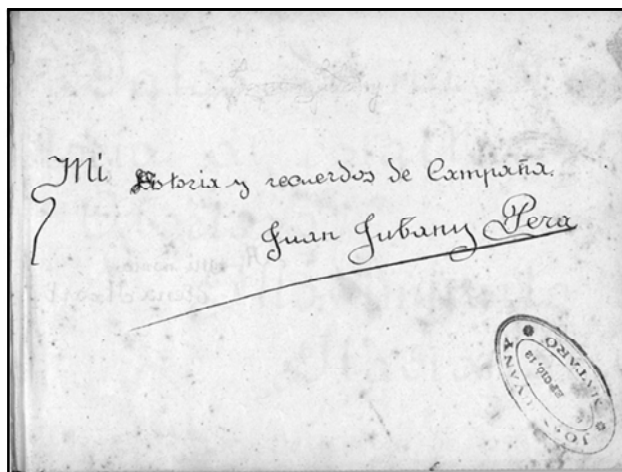 Mi Historia y recuerdos de Campaña.
Juan Jubany Pera
MATARÓ